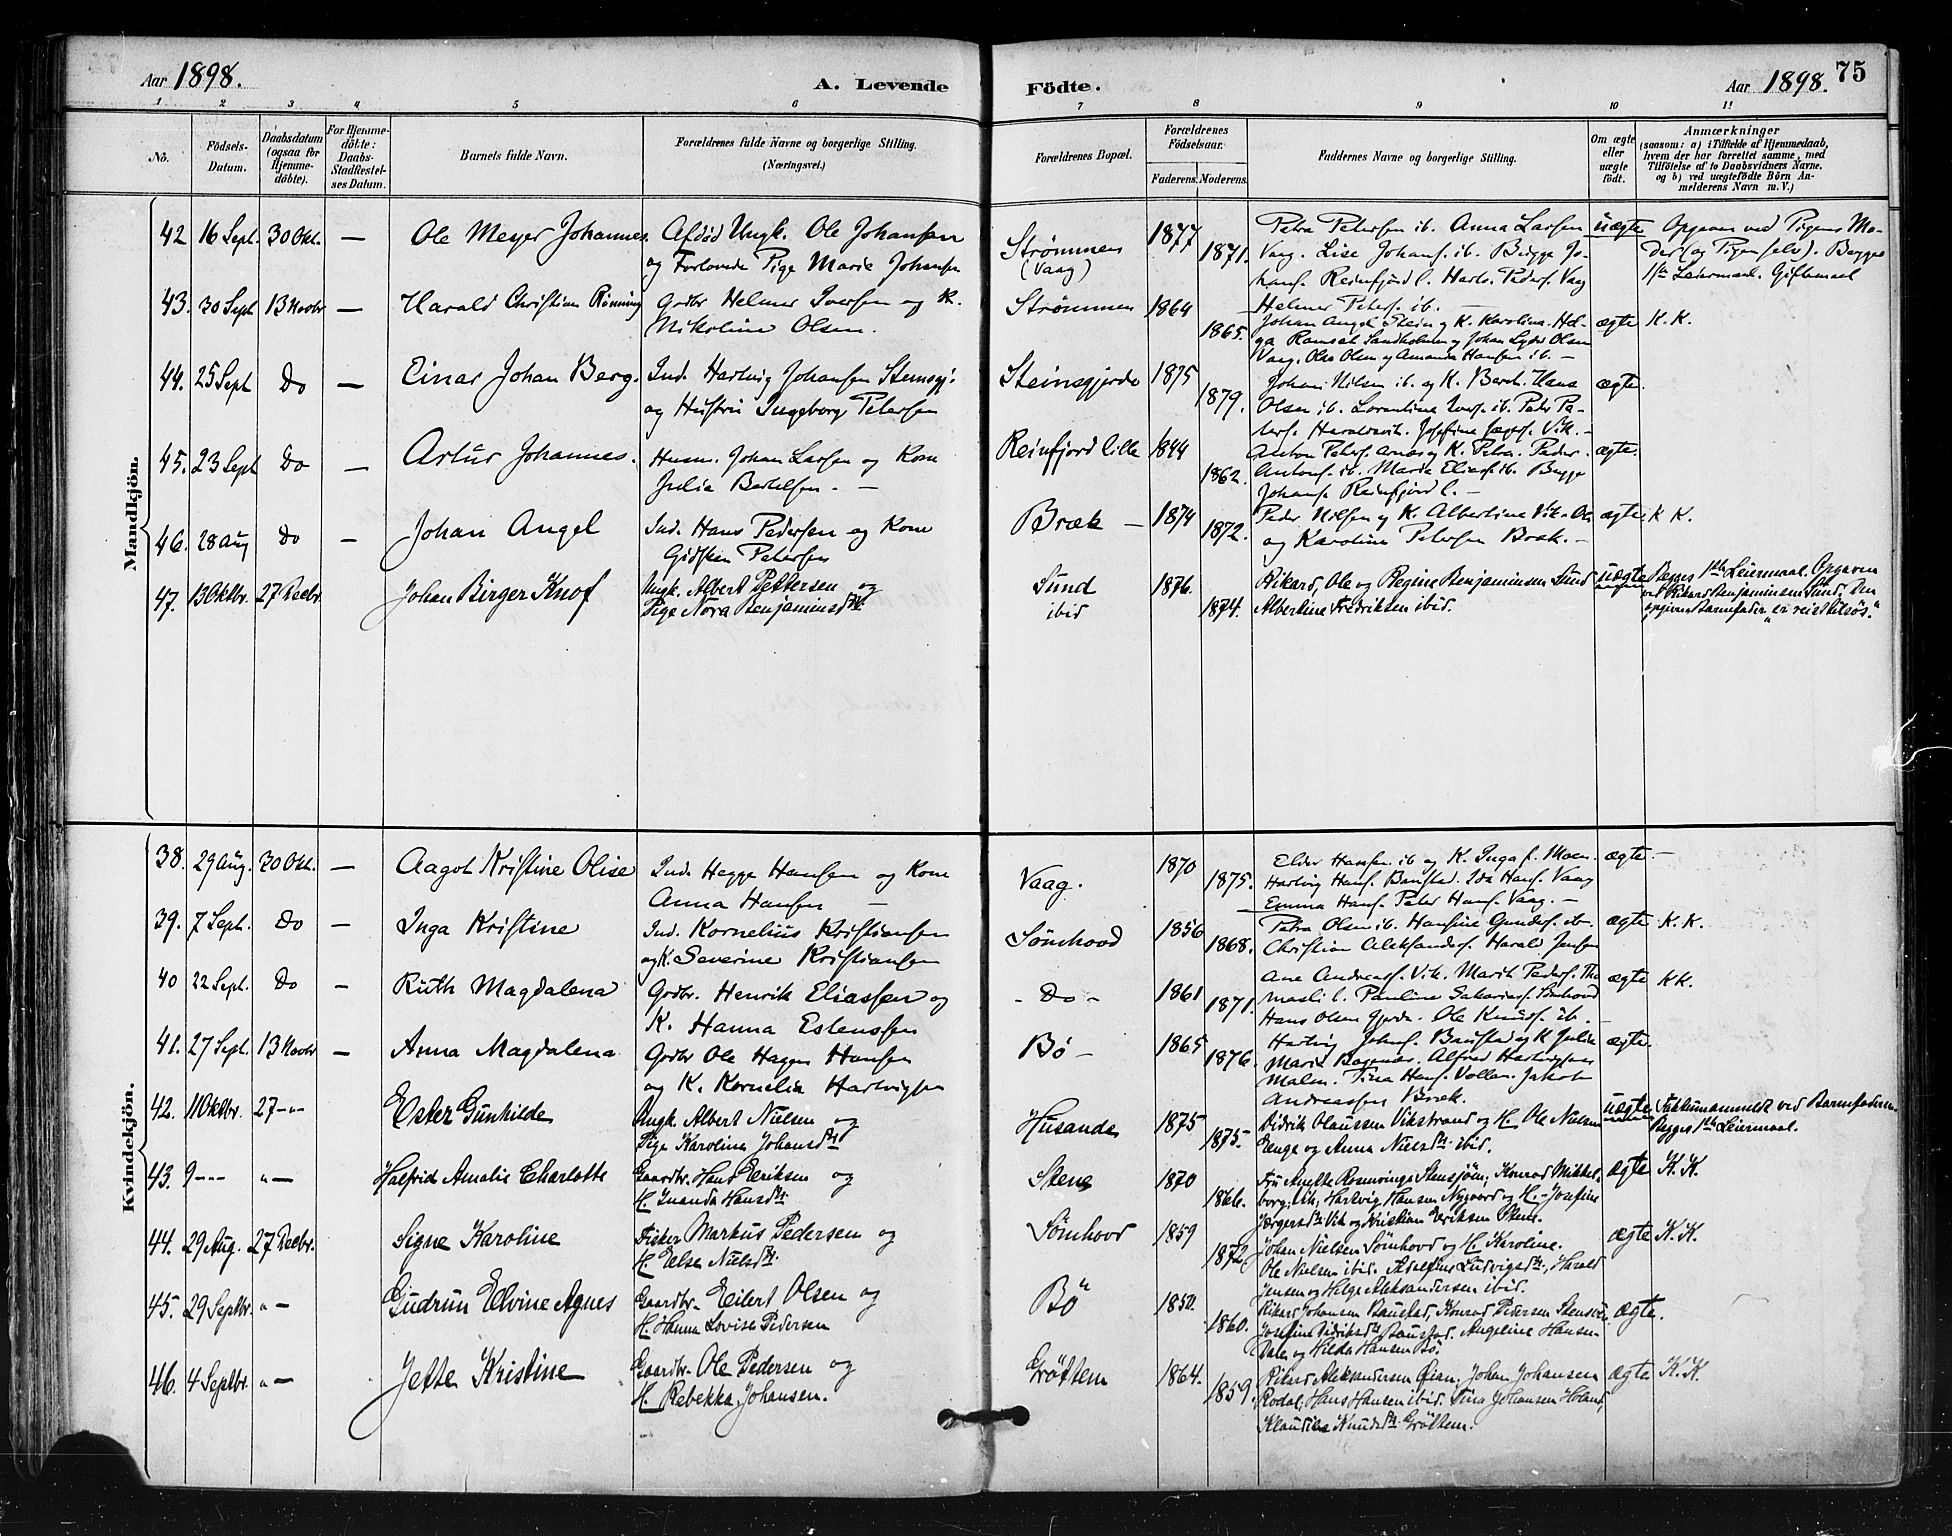 Aar 1898.
A. Levende
Födte.
Aar 1898.
75
1 2 3 4 5 6 7 8 9 10 11
No.
Födsels-
Datum.
Daabsdatum
(ogsaa for
Hjemme-
döbte).
For Hjemme-
döbte:
Daabs-
Stadfestel-
ses Datum.
Barnets fulde Navn.
Forældrenes fulde Navne og borgerlige Stilling.
(Næringsvei.)
Forældrenes Bopæl.
Forældrenes
Födselsaar.
Faderens. Moderens.
Faddernes Navne og borgerlige Stilling.
Om ægte
eller
uægte
födt.
Anmærkninger
(saasom: a) i Tilfælde af Hjemmedaab,
hvem der har forrettet samme, med
Tilföielse af to Daabsvidners Navne.
og b) ved uægtefödte Börn An-
melderens Navn m. V.)
Mandkjön.
42 16 Sept. 30 Okt. — Ole Meyer Johannes. Afdöd Ungk. Ole Johansen
og Forlovede Pige Marie Johansen
Strömmen
(Vaag)
1877
1871.
Petra Petersen ib. Anna Larsen
Vaag. Lise Johans. ib. Bigge Jo-
hans. Reinfjord l. Harts. Peders. Vaag
uægte
Opgaven ved Pigens Mo-
der (og Pigen selv). Begges
1ste Leiermaal. Giftemaal
43. 30 Sept 13 Novbr — Harald Christian Rönning Grdbr Helmer Iversen og K.
Nikoline Olsen.
Strömmen
1864
1865.
Helmer Peters. ib. —
Johan Angel Stein og K. Karolina. Hel-
ga Ramsat Sandholmen og Johan Lyder Olsen
Vaag. Olea Olsen og Amanda Hansen ib. —
ægte K. K.
44. 25 Sept Do — Einar Johan Berg. Ind. Hartvig Johansen Stensgj.
og Hustru Ingeborg Petersen
Steinsgjerde
1875
1879.
Johan Nilsen ib. og K. Berit. Hans
Olsen ib. Lorentine Ivers. ib. Peder Pe-
ders. Haraldsvik. Josefine Jægers. Vik. —
ægte
45. 23 Sept Do — Artur Johannes. Husm. Johan Larsen og Kone
Julia Bertelsen. —
Reinfjord lille
1844
1862.
Anton Peters. Arnøs og K. Petra. Peder
Antons. ib. Marie Elias. ib. Bygge
Johans. Reinfjord l. —
ægte.
46. 28 Aug Do — Johan Angel Ind. Hans Pedersen og Kone
Gidsken Petersen
Bræk —
1874
1872.
Peder Nilsen og K. Albertine Vik. Ole
og Karoline Petersen Bræk. —
ægte. K K.
47. 13 Oktbr. 27 Decbr. Johan Birger Knof Ungk. Albert Pettersen og
Pige Nora Benjaminsdtr.
Sund
ibid
1876.
1874.
Rikard, Ole og Regine Benjaminsen Sund
Albertine Fredriksen ibid.
uægte
Begges 1ste Leiermaal. Opgaven
ved Rikard Benjaminsen Sund. Den
opgivne Barnefader "er reist tilsös."
Kvindekjön.
38. 29 Aug. 30 Okt. — Aagot Kristine Olise Ind. Hegge Hansen og Kone
Anna Hansen —
Vaag.
1870
1875.
Elder Hansen ib og K. Inga f. Moen.
Hartvig Hans. Baustad. Ida Hans. Vaag
Emma Hans. Peter Hans. Vaag. —
ægte —
39. 7 Sept. Do — Inga Kristine Ind. Kornelius Kristiansen
og K. Severine Kristiansen
Sömhovd
1856
1868.
Petra Olsen ib. Hansine Gunders. ib.
Christian Aleksanders. Harald Jensen
ægte K. K.
40 22 Sept. Do — Ruth Magdalena Grdbr. Henrik Eliassen og
K. Hanna Estenssen
- Do -
1861
1871.
Ane Andreass. Vik. Marit Peders. Tho
masli l. Pauline Sakarias. Sömhovd
Hans Olsen Gjerde. Ole Knuds. ib. —
ægte KK.
41. 27 Sept. 13 Novbr — Anna Magdalena Grdbr Ole Hagen Hansen
og K. Kornelia Hartvigsen
Bö —
1865
1876.
Hartvig Johans. Baustad og K Julie
Marie Bogenæs. Alfred Hartvigsen
Malm. Tina Hans. Vollan. Jakob
Andreassen Bræk.
ægte.
42. 11 Oktbr. 27 -"- Ester Gunhilde Ungk. Albert Nielsen og
Pige Karoline Johansdtr
Husande
1875
1875.
Didrik Olaussen Vikstrand og H. Ole Nielsen
Eenge og Anna Nielsdtr. ibid.
uægte
Begges 1ste Leiermaal.
43. 9 - - - "- Halfrid Amalie Charlotte Gaardbr. Hans Eriksen og
H. Inanda Hansdtr
Stene
1870
1866.
Fru Anette Rosenvinge Stensjöen, Konrad Mikkel-
borg, Vik, Hartvig Hansen Nygaard og H. Josefine
Jørgensdtr Vik og Kristian Eriksen Stene.
ægte K. K.
44. 29 Aug. 27 Decbr. Signe Karoline Fisker Markus Pedersen og
H. Else Nielsdtr.
Sömhovd
1859
1872
Johan Nielsen Sömhovd og H. Karoline.
Ole Nielsen ibid. Adolfine Ludvigsdtr., Harald
Jensen og Helge Aleksandersen ibid.
ægte K. K.
45. 29 Septbr. "- Gudrun Elvine Agnes Gaardbr. Eilert Olsen og
H. Hanna Lovise Pedersen
Bö
1852.
1860.
Rikard Johansen Baustad, Konrad Pedersen Stensöen,
Josefine Didriksdtr Baustad. Angeline Hansen
Dalen og Hilda Hansen Bö.
ægte.
46. 4 Septbr. "- Jette Kristine Gaardbr. Ole Pedersen og
H. Rebekka Johansen.
Gröttem
1864.
1859.
Rikard Aleksandersen Öian, Johan Johansen
Rodal, Hans Hansen ibid. Tina Johansen Holand,
Klaudine Knudsdtr. Gröttem.
ægte K. K.